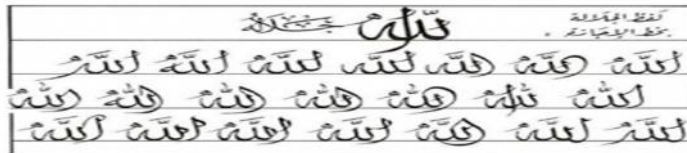 لفظ الجلالة
بخط الإجازة .
الله جل جلاله
الله الله الله الله الله الله الله
الله الله الله الله الله الله الله
الله الله الله الله الله الله الله